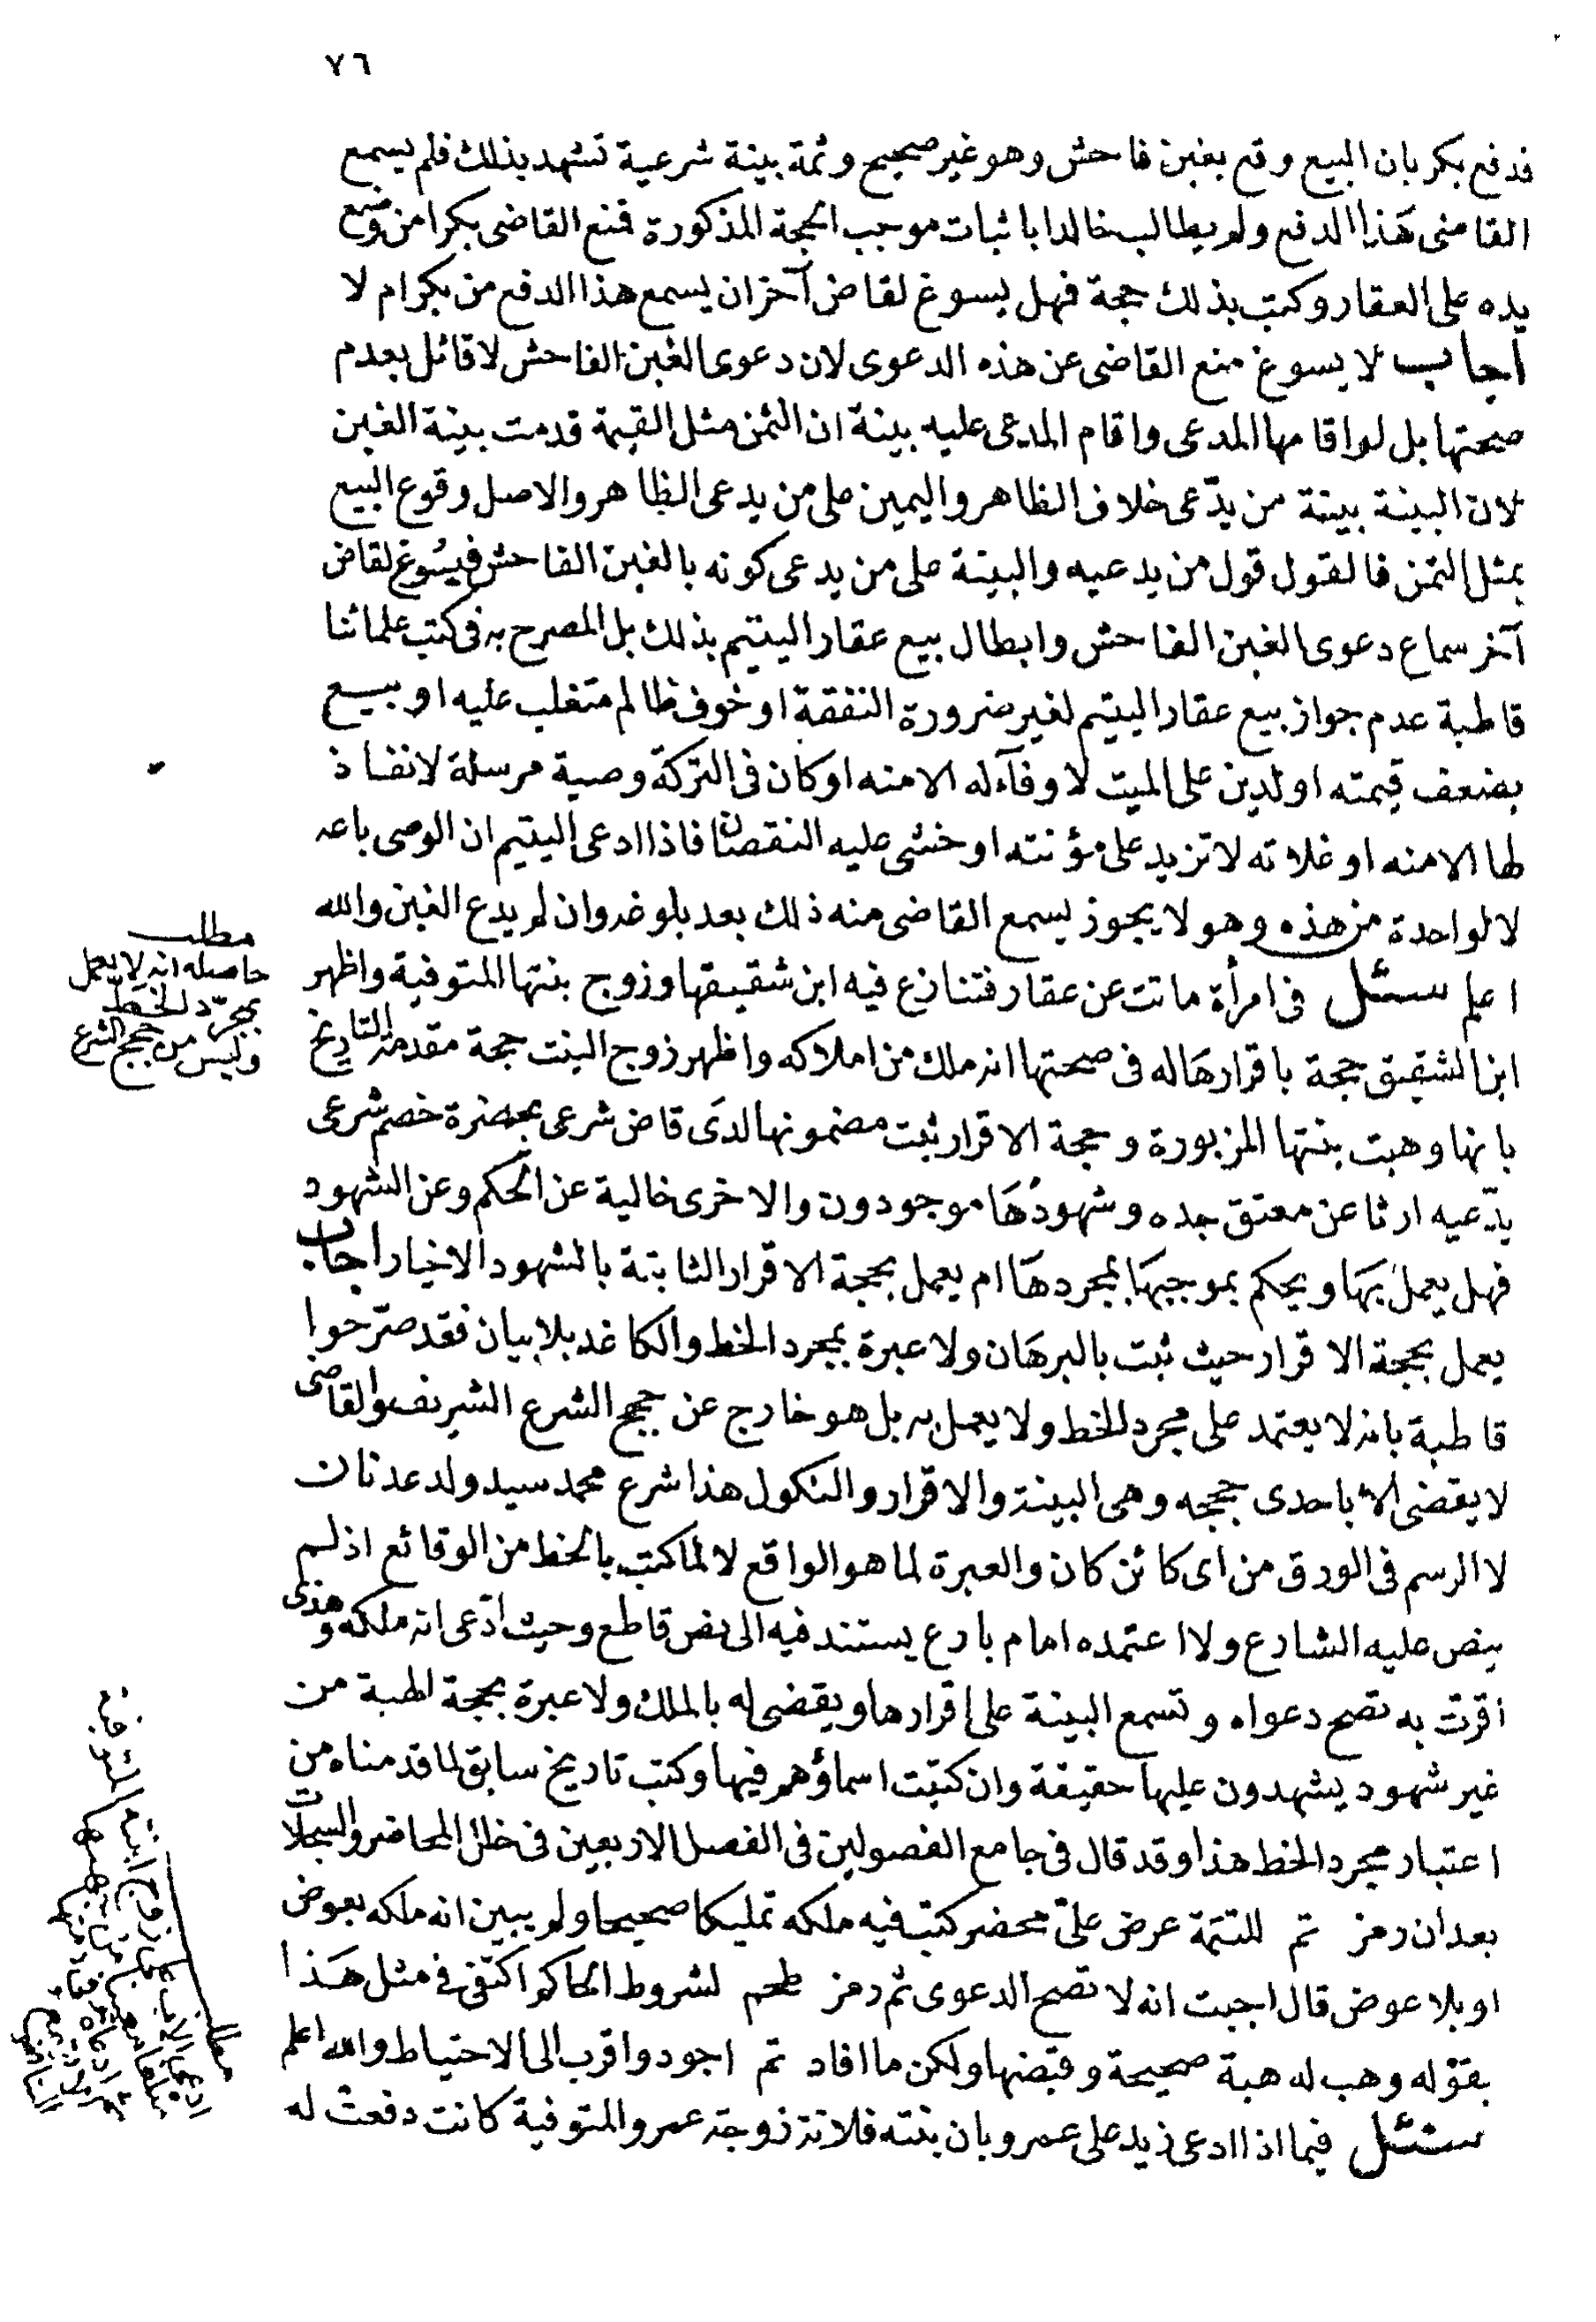 ٧٦
فدفع بكر بان البيع وقع بغبن فاحش وهو غير صحيح وثمة بينة شرعية تشهد بذلك فلم يسمع
القاضى هذا الدفع ولم يطالب خالدا باثبات موجب الحجة المذكورة فمنع القاضى بكرا من وضع
يده على العقار وكتب بذلك حجة فهل يسوغ لقاض آخر ان يسمع هذا الدفع من بكر ام لا
اجاب لا يسوغ منع القاضى عن هذه الدعوى لان دعوى الغبن الفاحش لا قائل بعدم
صحتها بل لو اقامها المدعى واقام المدعى عليه بينة ان الثمن مثل القيمة قدمت بينة الغبن
لان البينة بينة من يدّعى خلاف الظاهر واليمين على من يدعى الظاهر والاصل وقوع البيع
بمثل الثمن فالقول قول من يدعيه والبينة على من يدعى كونه بالغبن الفاحش فيسُوغ لقاض
آخر سماع دعوى الغبن الفاحش وابطال بيع عقار اليتيم بذلك بل المصرح به فى كتب علمائنا
قاطبة عدم جواز بيع عقار اليتيم لغير ضرورة النفقة او خوف ظالم متغلب عليه او بيع
بضعف قيمته او لدين على الميت لا وفآء له الا منه او كان فى التركة وصية مرسلة لا نفاذ
لها الا منه او غلاته لا تزيد على مؤنته او خشى عليه النقصان فاذا ادعى اليتيم ان الوصى باعه
لا لواحدة من هذه وهو لا يجوز يسمع القاضى منه ذلك بعد بلوغه وان لم يدع الغبن والله
اعلم سئل فى امرأة ماتت عن عقار فتنازع فيه ابن شقيقها وزوج بنتها المتوفية واظهر
ابن الشقيق حجة باقرارها له فى صحتها انه ملك من املاكه واظهر زوج البنت حجة مقدمة التاريخ
بانها وهبت بنتها المزبورة وحجة الاقرار ثبت مضمونها لدى قاض شرعى بحضرة خصم شرعى
يدّعيه ارثا عن معتق جده وشهودُها موجودون والاخرى خالية عن الحكم وعن الشهود
فهل يعمل بها ويحكم بموجبها بمجردها ام يعمل بحجة الاقرار الثابتة بالشهود الاخيار اجاب
يعمل بحجة الاقرار حيث ثبت بالبرهان ولا عبرة بمجرد الخط والكاغد بلا بيان فقد صرّحوا
قاطبة بانه لا يعتمد على مجرد الخط ولا يعمل به بل هو خارج عن حجج الشرع الشريف والقاضى
لا يقضى الا باحدى حججه وهى البينة والاقرار والنكول هذا شرع محمد سيد ولد عدنان
لا الرسم فى الورق من اى كائن كان والعبرة لما هو الواقع لا لما كتب بالخط من الوقائع اذ لم
ينص عليه الشارع ولا اعتمده امام بارع يستند فيه الى نص قاطع وحيث ادّعى انه ملكه وهذى
اقرت به تصح دعواه وتسمع البينة على اقرارها ويقضى له بالملك ولا عبرة بحجة الهبة من
غير شهود يشهدون عليها حقيقة وان كتبت اسماؤهم فيها وكتب تاريخ سابق لما قدمناه من
اعتبار مجرد الخط هذا وقد قال فى جامع الفصولين فى الفصل الاربعين فى خلل المحاضر والسجلات
بعد ان رمز تم للتتمة عرض علىّ محضر كتب فيه ملكه تمليكا صحيحا ولم يبين انه ملكه بعوض
او بلا عوض قال اجبت انه لا تصح الدعوى ثم رمز طحم لشروط الحاكم اكتفى فى مثل هذا
بقوله وهب له هبة صحيحة وقبضها ولكن ما افاد تم اجود واقرب الى الاحتياط والله اعلم
سئل فيما اذا ادعى زيد على عمرو بان بنته فلانة زوجة عمرو المتوفية كانت دفعت له
مطلب
حاصله انه لا يعمل
بمجرّد الخط
وليس من حجج الشرع
مطلب